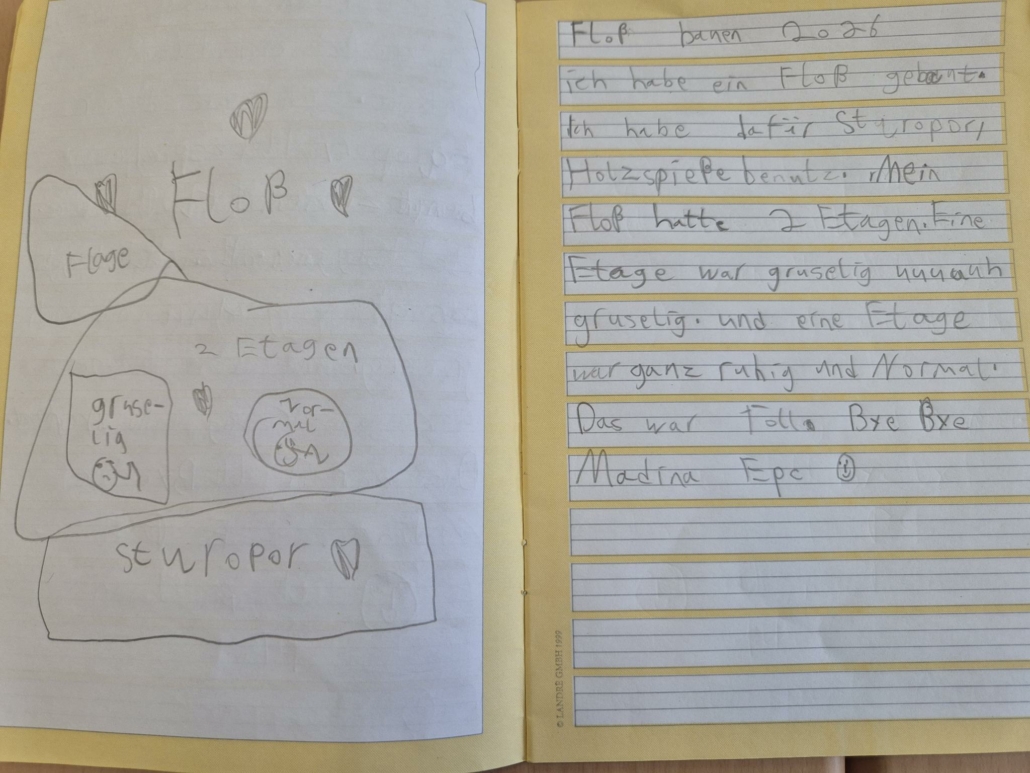 Floß
Flage
2 Etagen
gruse-
lig
Nor-
mal
sturopor
Floß bauen 2026
ich habe ein Floß gebaut.
Ich habe dafür Sturopor,
Holzspieße benutz. Mein
Floß hatte 2 Etagen. Eine
Etage war gruselig uuuauh
gruselig. und eine Etage
war ganz ruhig und Normal.
Das war Toll. Bye Bye
Madina Epc
© LANDRÉ GMBH 1999